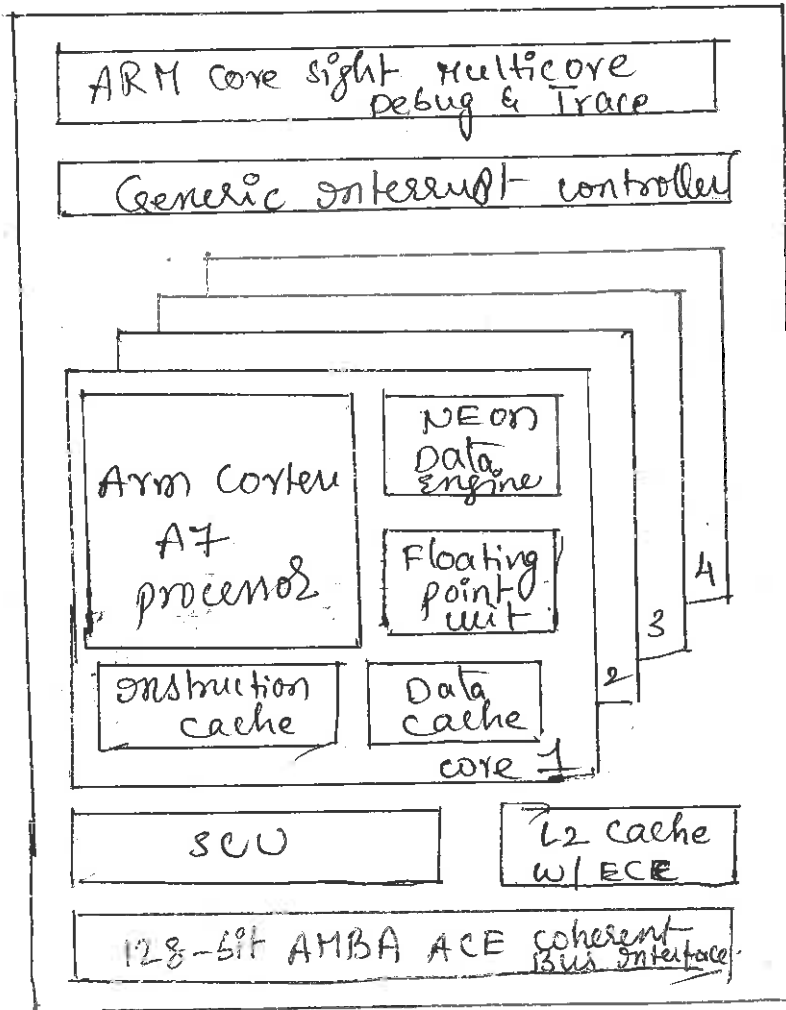 ARM Core Sight Multicore
Debug & Trace
Generic Interrupt controller
NEON
Data
Engine
Arm Cortex
A7
processor
Floating
point
unit
4
3
2
Instruction
cache
Data
cache
core 1
SCU
L2 cache
W/ ECE
128-bit AMBA ACE coherent
Bus Interface